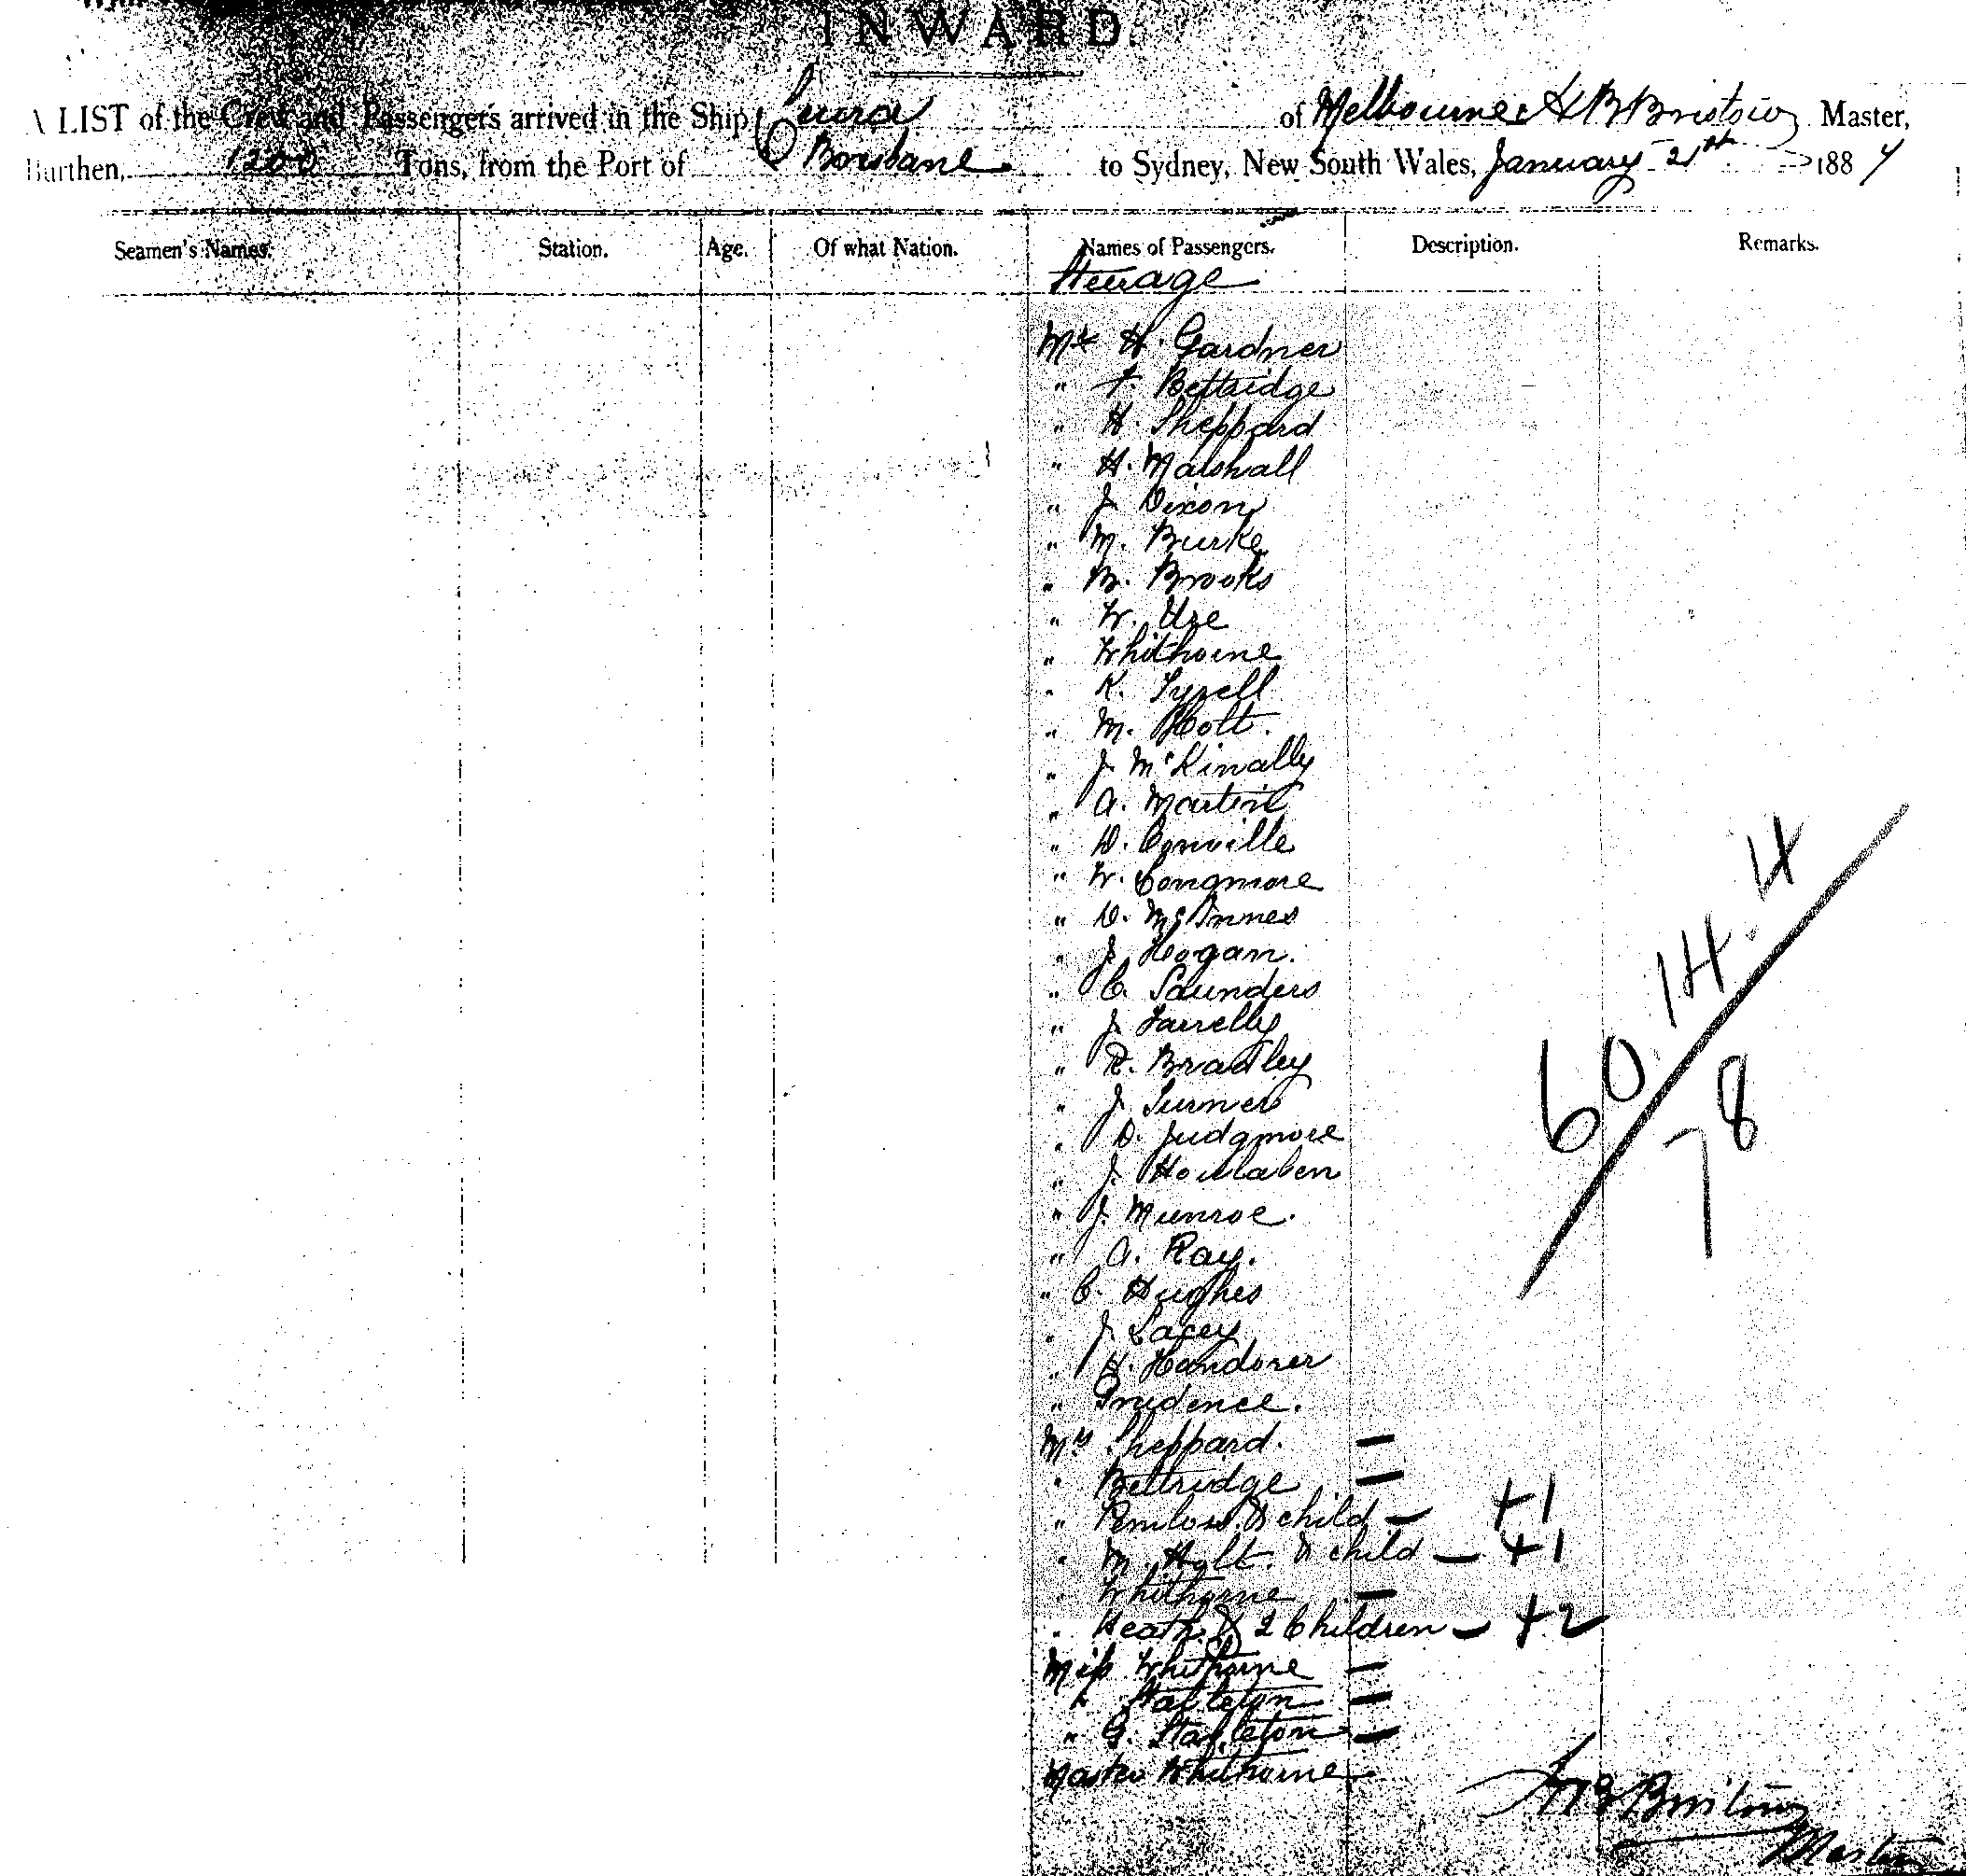 INWARD.
A LIST of the Crew and Passengers arrived in the Ship of Melbourne H B Bristow Master,
Burthen, 1200 Tons, from the Port of Brisbane to Sydney, New South Wales, January 21th 1887
Seamen's Names. Station. Age. Of what Nation. Names of Passengers. Description. Remarks.
Steerage
Mr H. Gardner
" F Bettridge
" H. Sheppard
" H. Marshall
" J Dixon
" M. Burke
" B. Brooks
" W. Ure
" Whithorne
" K. Tyrell
" M. Holt.
" J McKinally
" A. Martin
" D. Conville
" W. Longmore
" D. McInnes
" J. Hogan.
" C. Saunders
" J. Farrelly
" R. Bradley
" J. Turner
" D. Judgmore
" J.
" J. Munroe.
" A. Ray.
" C. Hughes
" J Lacey
" H.
" Prudence.
Mrs Sheppard. —
" Bettridge —
" & child — +1
" M. Holt. & child — +1
" Whithorne —
" Heath & 2 Children — +2
Miss Whithorne —
" Stapleton —
" G. Stapleton —
Master Whithorne
60.14.4
78
H B Bristow
Master